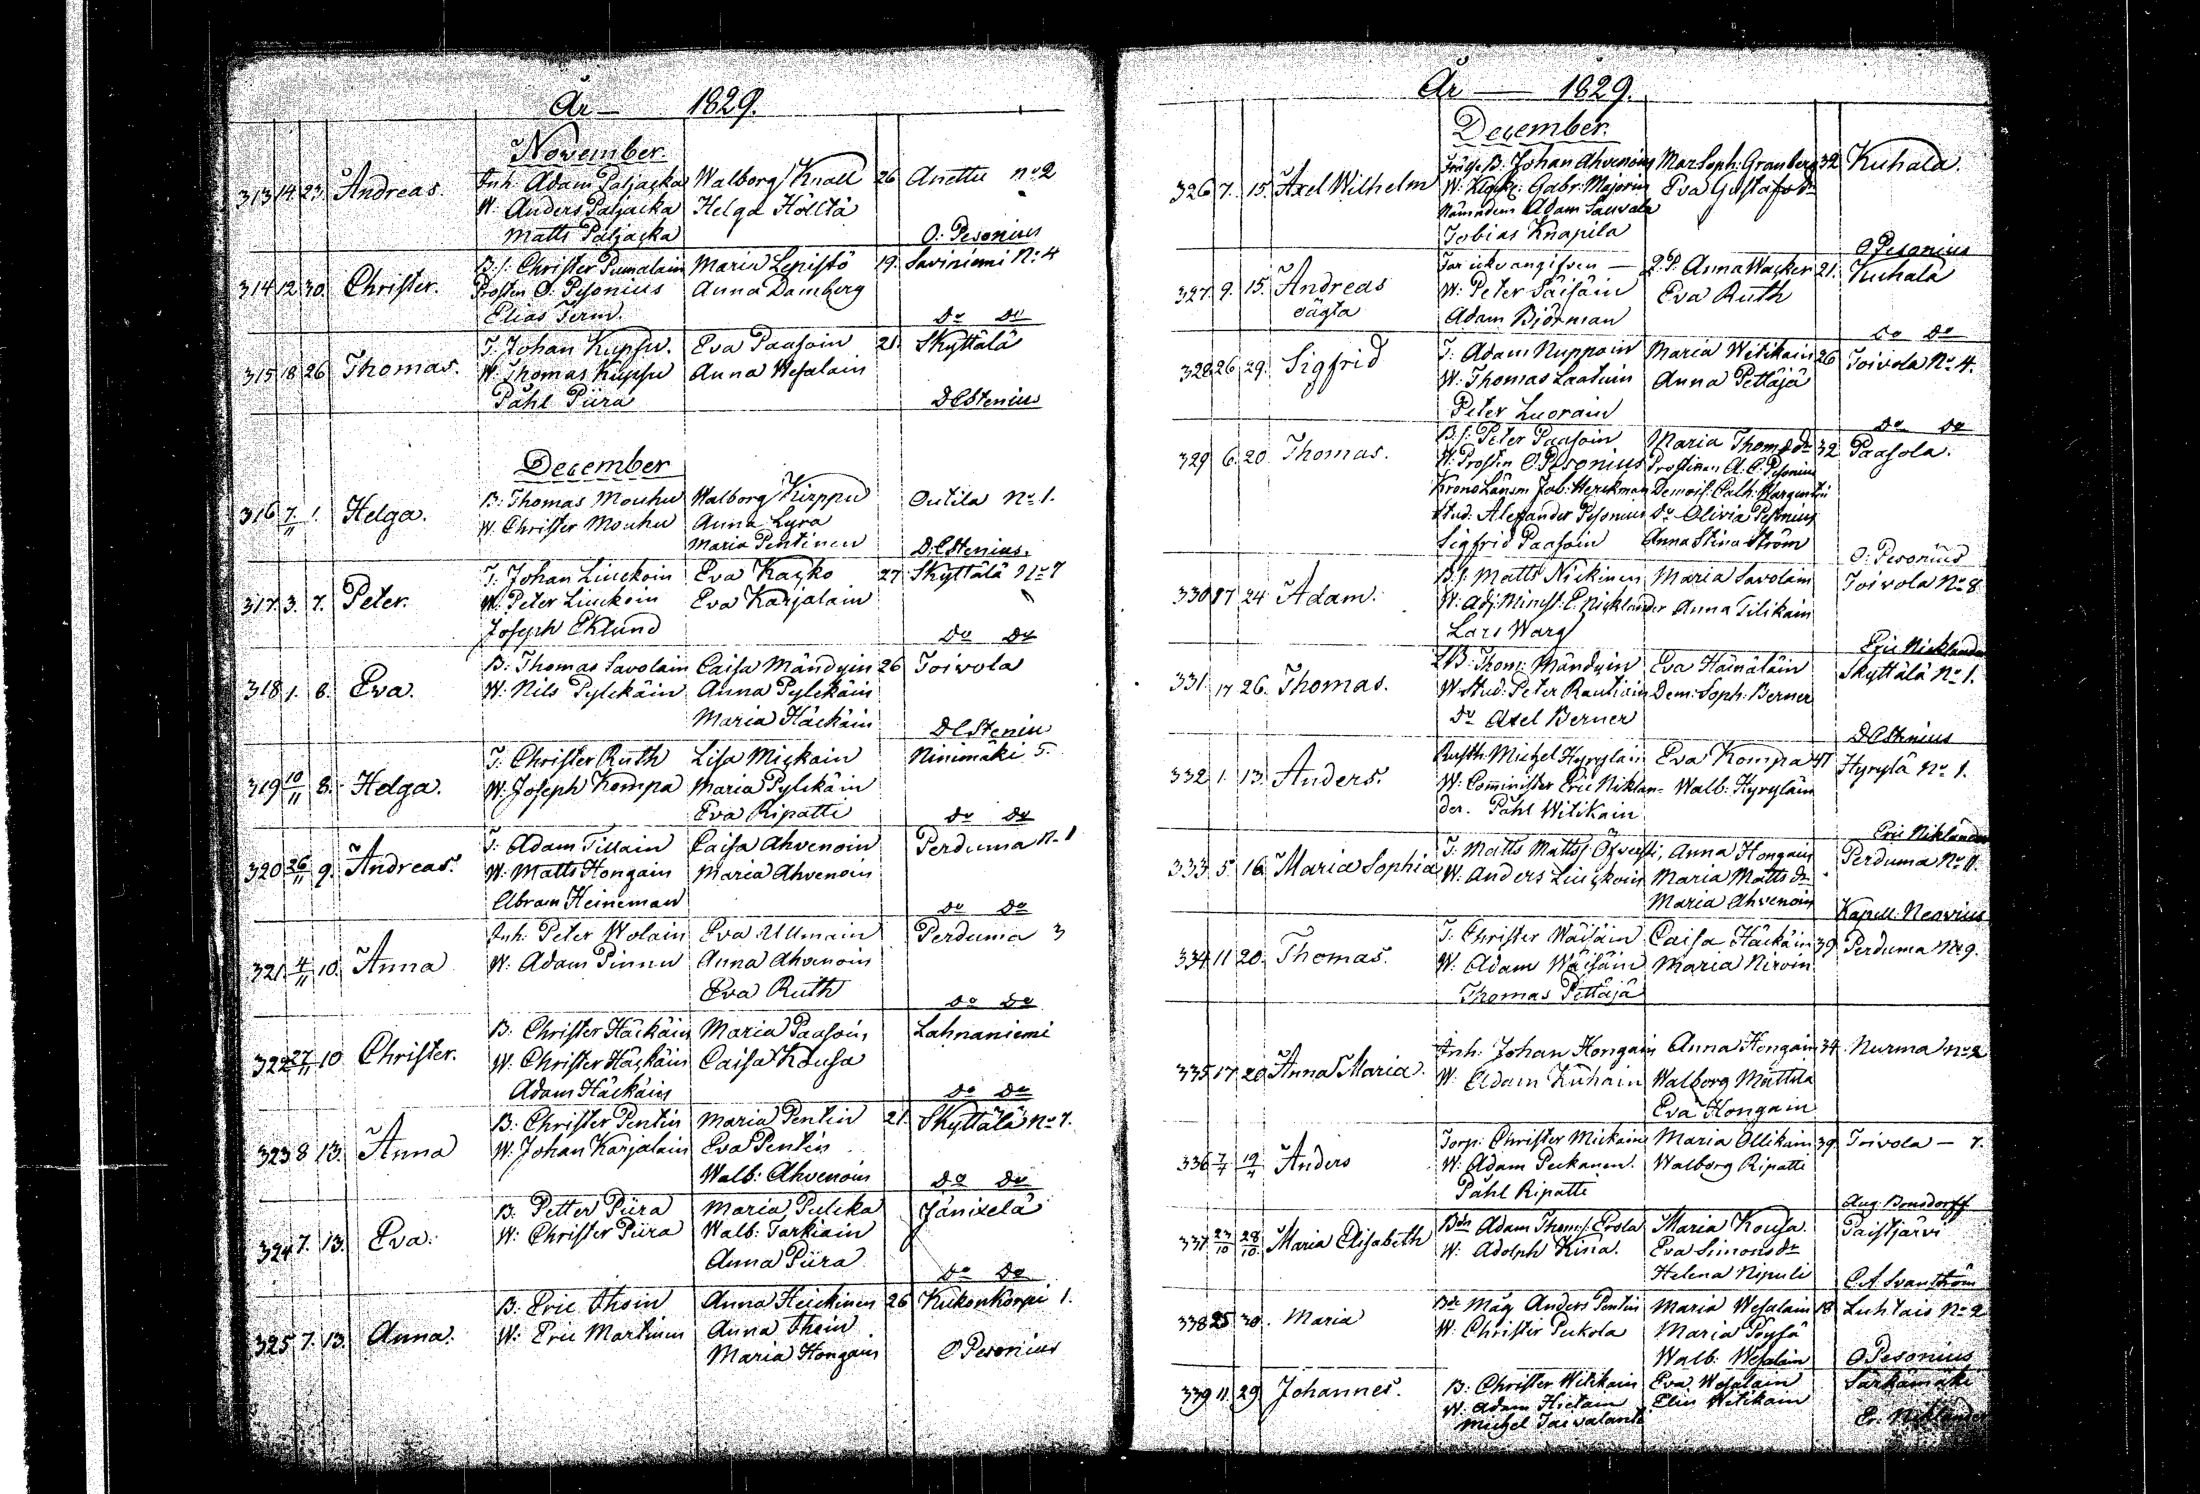 År — 1829.
November.
313 14 23 Andreas. Inh. Adam Paljacka Walborg Knall 26 Anettu No 2
W. Anders Paljacka Helga Hölttä
Matts Paljacka O. Pesonius
314 12 30 Christer. B.s. Christer Pumalain Maria Lepistö 19. Saviniemi No 4
Prosten O. Pesonius Anna Damberg
Elias Term. Do Do
315 18 26 Thomas. T. Johan Kuppu. Eva Paasoin 21. Skyttälä
W. Thomas Kuppu Anna Wesalain
Påhl Piira DEStenius
December
316 7/11 1. Helga. B. Thomas Mouhu Walborg Kirppu Outila No 1.
W. Christer Mouhu Anna Lyra
Maria Pentinen D.EStenius.
317. 3. 7. Peter. T. Johan Liuckoin Eva Kacko 27 Skyttälä No 7
W. Peter Liuckoin Eva Karjalain
Joseph Eklund Do Do
318 1. 8. Eva. B. Thomas Savolain Caisa Mändyin 26 Toivola
W. Nils Pylckäin Anna Pylckäin
Maria Häckäin DEStenius
319 10/11 8. Helga. T. Christer Ruth Lisa Mickain Ninimäki 5
W. Joseph Kompa Maria Pylckäin
Eva Ripatti Do Do
320 26/11 9. Andreas. T. Adam Tillain Caisa Ahvenoin Perduma N. 1
W. Matts Hongain Maria Ahvenoin
Abram Heineman Do Do
321. 4/11 10. Anna Inh. Peter Wolain Eva Ullmain Perduma 3
W. Adam Pinnu Anna Ahvenoin
Eva Ruth Do Do
322 27/11 10 Christer. B. Christer Häckäin Maria Paasoin Lahnaniemi
W. Christer Häckäin Caisa Kousa
Adam Häckäin Do Do
323 8 13. Anna B. Christer Pentin Maria Pentin 21. Skyttälä No 7.
W. Johan Karjalain Eva Pentin
Walb: Ahvenoin Do Do
324 7. 13. Eva. B. Petter Piira Maria Pulcka Jänixelä
W. Christer Piira Walb: Tarkiain
Anna Piira Do Do
325 7. 13. Anna. B. Eric Thoin Anna Heickinen 26 Kukonkorpi 1.
W. Eric Martinen Anna Thoin
Maria Hongain O Pesonius
År — 1829.
December.
326 7. 15. Axel Wilhelm B. Johan Ahvenoius Mar Soph: Granberg 32 Kuhala.
W. Gabr: Majorin Eva Gustafsdr
Nämndem Adam Sauvala
Tobias Knapila O Pesonius
327. 9. 15. Andreas Far icke angifven — Q.P. Anna Wacker 21. Kuhala
oägta W. Peter Säisäin Eva Ruth
Adam Björman Do Do
328 26 29. Sigfrid T. Adam Nuppoin Maria Witikain 26 Toivola No 4.
W. Thomas Laatuin Anna Pettäjä
Peter Luorain Do Do
329 6. 20. Thomas. B.s. Peter Paasoin Maria Thomsdr 32 Paasola.
W. Prosten O. Pesonius Prostinan A. C. Pesonius
Krono Länsm Job: Herckman Demois: Cath: Wargentin
Stud. Alexander Pesonius Do Olivia Pesonius
Sigfrid Paasoin Anna Stina Ström O. Pesonius
330 17 24 Adam. B.s. Matts Nickinen Maria Savolain Toivola No 8
W. Adj: Minist: E. Nicklander Anna Tilikain
Lars Warg Eric Nicklander
331 17 26. Thomas. LB. Thom: Mändyin Eva Hämäläin Skyttälä No 1.
W. Stud: Peter Rautiain Dem: Soph: Berner
Do Axel Berner DEStenius
332 1. 13. Anders. Rusth: Michel Hyryläin Eva Kompa 47 Hyrylä No 1.
W. Comminister Eric Niklan- Walb: Hyryläin
der. Påhl Witikain Eric Niklander
333 5 16 Maria Sophia T. Matts Mattss Öfversti, Anna Hongain Perduma No 11.
W. Anders Liuckoin Maria Mattsdr
Maria Ahvenoin Kapell: Neovius
334 11 20. Thomas. T. Christer Wäisäin Caisa Häckäin 39 Perduma No 9.
W. Adam Wäisäin Maria Nirvin
Thomas Pettäjä
335 17. 20 Anna Maria. Inh: Johan Hongain Anna Hongain 34. Nurma No 2
W. Adam Kuhain Walborg Mattila
Eva Hongain
336 7/4 19/4 Anders Torp: Christer Mickain Maria Ollikain 39. Toivola — 7.
W. Adam Peckanen. Walborg Ripatti
Påhl Ripatti Aug: Bonsdorff
337 23/10 28/10 Maria Elisabeth Bdn Adam Thoms. Erola Maria Kousa. Paistjärvi
W. Adolph Kina. Eva Simonsdr
Helena Nipuli C.A. Svanström
338 25 30. Maria Bde Måg Anders Pentin Maria Wesalain 18 Luhtais No 2
W. Christer Peckola Maria Pöysä
Walb: Wesalain O Pesonius
339 11. 29 Johannes. B. Christer Witikain Eva Wesalain Särkämäki
W. Adam Hietain Elin Witikain
Michel Taivalanti Er. Niklander